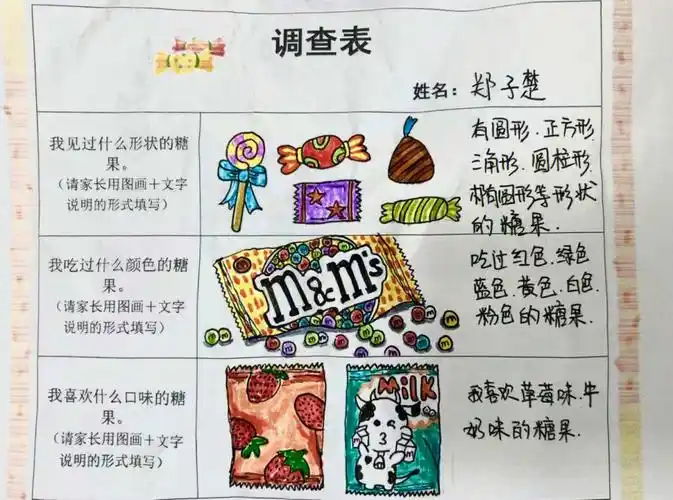 调查表
姓名：郑子楚
我见过什么形状的糖
果。
（请家长用图画＋文字
说明的形式填写）
有圆形、正方形
三角形、圆柱形、
椭圆形等形状
的糖果.
我吃过什么颜色的糖
果。
（请家长用图画＋文字
说明的形式填写）
m&m's
吃过红色、绿色
蓝色、黄色、白色、
粉色的糖果.
我喜欢什么口味的糖
果。
（请家长用图画＋文字
说明的形式填写）
MiLK
我喜欢草莓味、牛
奶味的糖果.